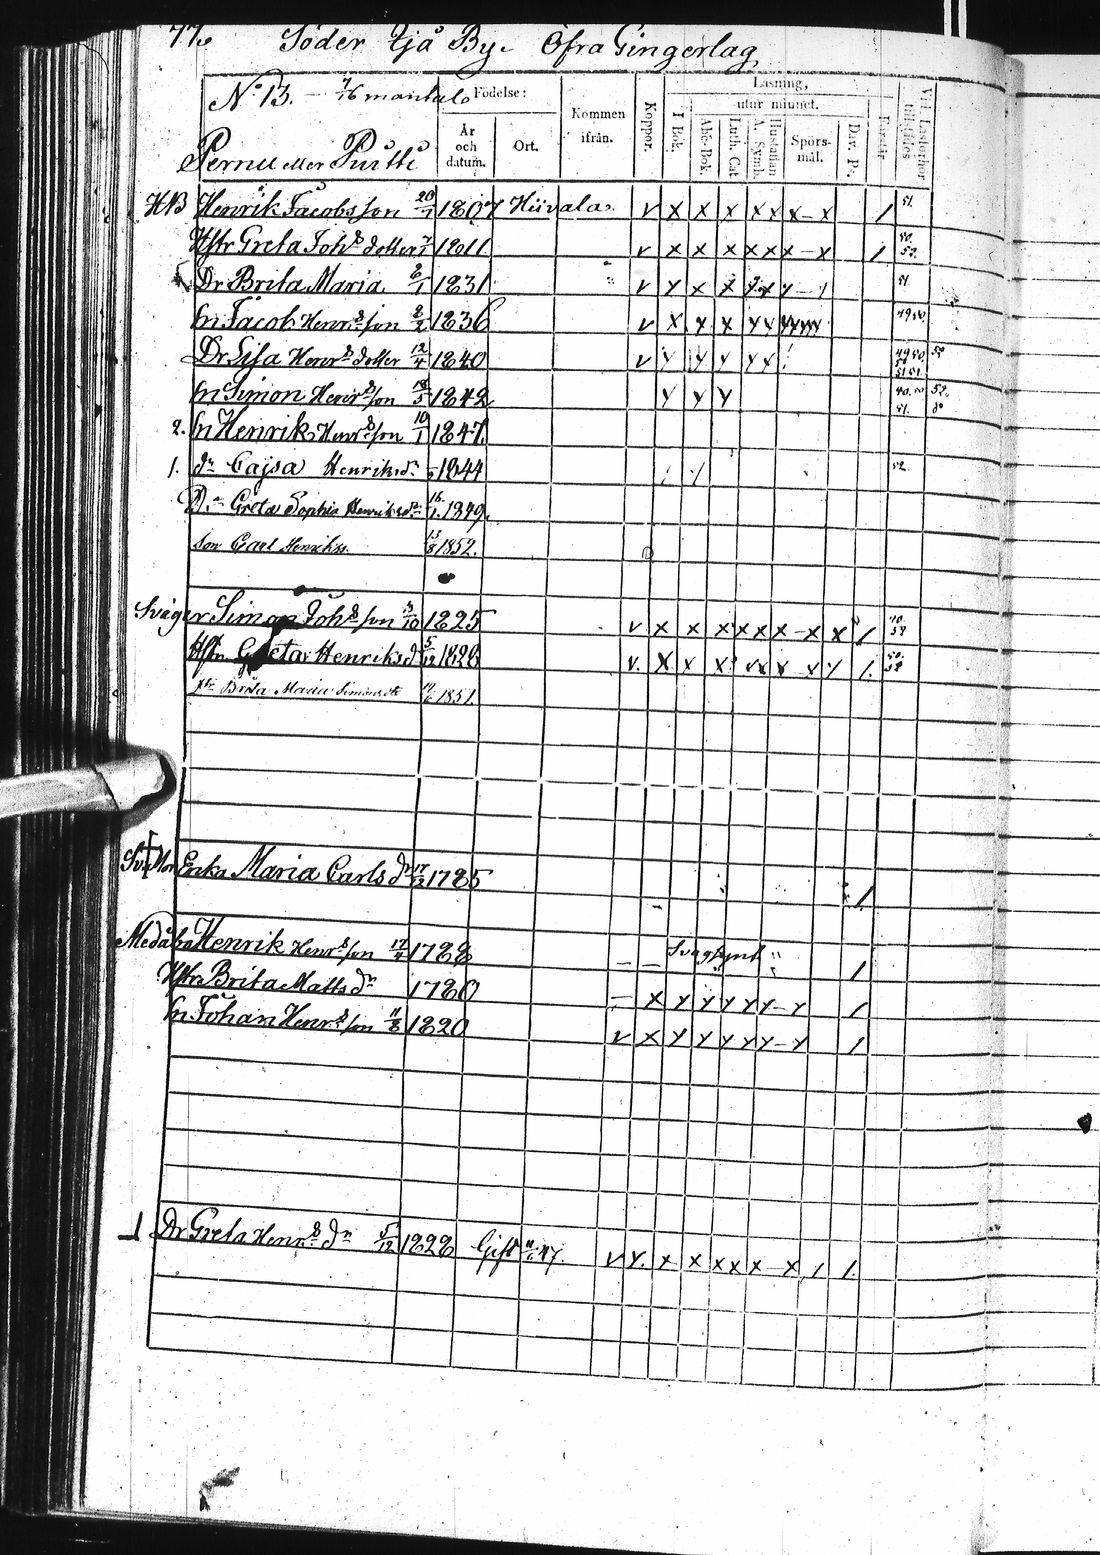 77.
Söder Yjå By. Öfra Gingerlag
No 13. — 7/16 mantal
Pernu eller Puutti
Födelse:
År och datum.
Ort.
Kommen ifrån.
Koppor.
Läsning,
utur minnet.
I Bok.
Abc-Bok.
Luth. Cat.
A. Symb.
Hustaflan
Spörsmål.
Dav. Ps.
Förstår.
Vid Läsförhör tillstädes
HB Henrik Jacobsson 20/7 1807 Hiivala. v x x x x x x - x 1 51.
Hstr Greta Johs dotter 1811. v x x x x x x - x 1 50. 52.
Dr Brita Maria 2/1 1831 v y x x x x y - 1 51
Sn Jacob Henrs son 8/2 1836 v x y x y y y y y y 49 50
Dr Lisa Henrs dotter 12/4 1840 v y y y y x 49 50 52
Sn Simon Henrs son 18/5 1842 y y y 52.
2. Sn Henrik Henrs son 10/1 1847.
1. dr Cajsa Henriksdr 1844 52
Dr Greta Sophia Henriksdr 16/1. 1849.
Son Carl Henrikss. 13/8 1852.
Svåger Simon Johs son 3/10 1825 v x x x x x x - x x 1 52
Hstr Greta Henriksd 5/12 1828 v. x x x x x x x y 1. 50. 52
dr Brita Maria Simonsdr 1851.
Sv. Mor Enka Maria Carlsdr 17/12 1785 1
Medåbo Henrik Henrs son 17/4 1788 — — Svagsynt 1
Hstr Brita Mattsdr 1780 — x y y y y y - y 1
Sn Johan Henrs son 11/8 1820 v x y y y y y - y 1
1 Dr Greta Henrs dr 5/12 1828 Gift 47. v y. x x x x x - x 1 1.